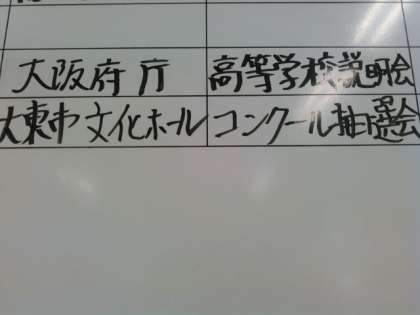 大阪府庁 高等学校説明会
大東市文化ホール コンクール抽選会